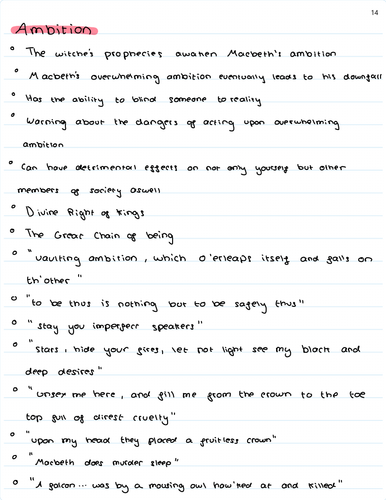 14
Ambition
° The witche's prophecies awaken Macbeth's ambition
° Macbeth's overwhelming ambition eventually leads to his downfall
° Has the ability to blind someone to reality
° Warning about the dangers of acting upon overwhelming
ambition
° Can have detrimental effects on not only yourself but other
members of society aswell
° Divine Right of Kings
° The Great Chain of being
° "vaulting ambition, which o'erleaps itself and falls on
th'other"
° "to be thus is nothing but to be safely thus"
° "stay you imperfect speakers"
° "stars, hide your fires, let not light see my black and
deep desires"
° "unsex me here, and fill me from the crown to the toe
top full of direst cruelty"
° "upon my head they placed a fruitless crown"
° "Macbeth does murder sleep"
° "A falcon... was by a mousing owl how'ked at and killed"